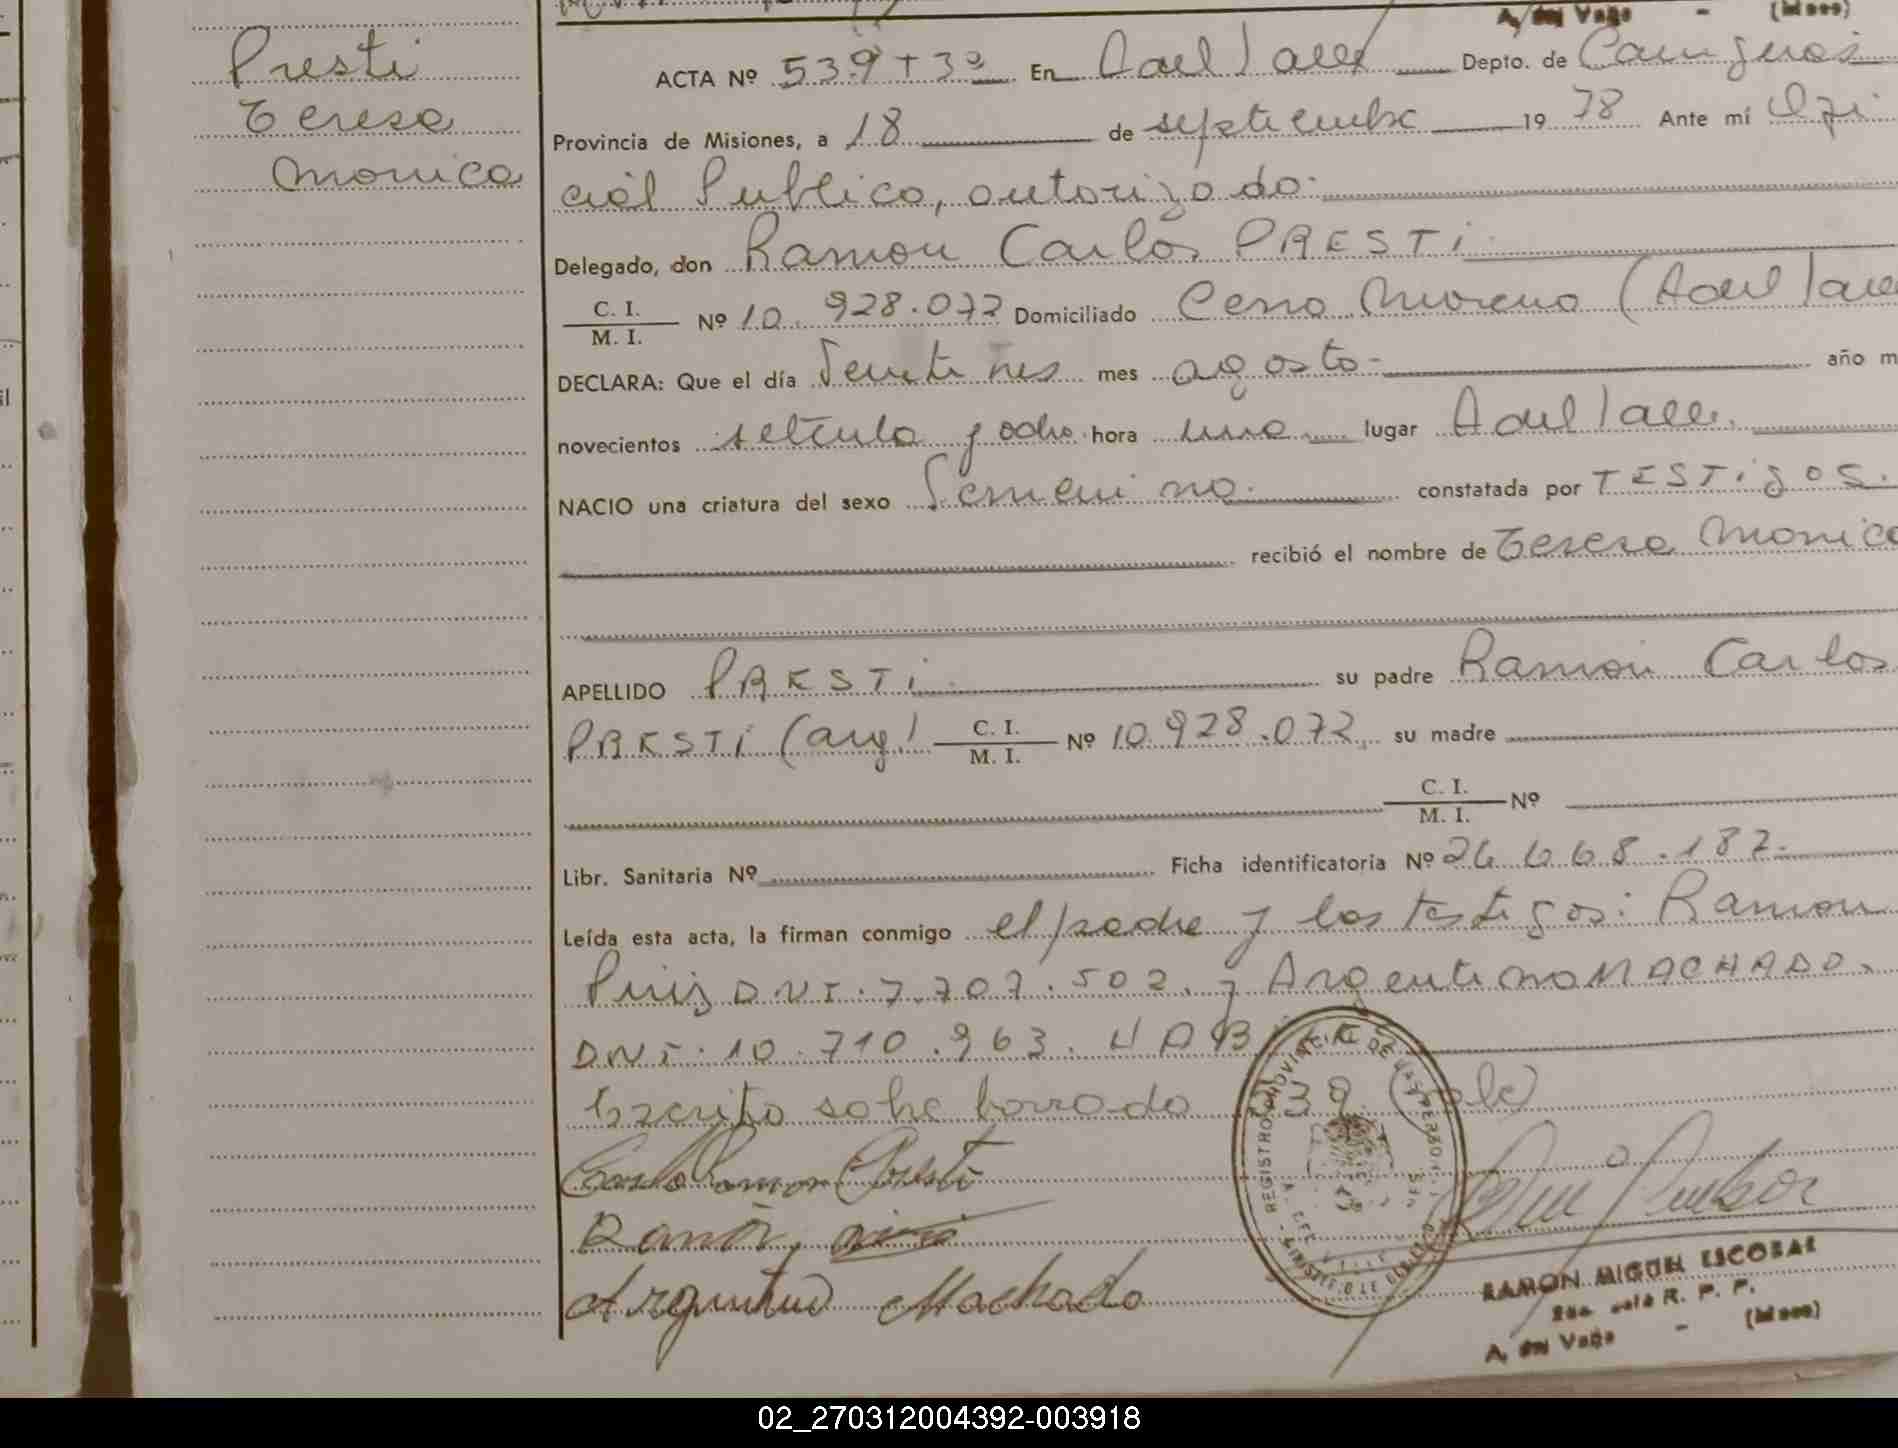 A. del Valle - (Mnes)
Presti
Teresa
Monica
ACTA Nº 539 T 3º En A del Valle Depto. de Cainguas
Provincia de Misiones, a 18 de septiembre 1978 Ante mí Ofi
cial Publico, autorizado.
Delegado, don Ramon Carlos PRESTI.
C. I.
M. I. Nº 10.928.072 Domiciliado Cerro Moreno (A del Valle
DECLARA: Que el día Veinti tres mes agosto- año m
novecientos setenta y ocho hora una lugar A del Valle.
NACIO una criatura del sexo Femenino. constatada por TESTigos.
recibió el nombre de Teresa Monica
APELLIDO PRESTi. su padre Ramon Carlos
PRESTI (arg) C. I.
M. I. Nº 10.928.072, su madre
C. I.
M. I. Nº
Libr. Sanitaria Nº Ficha identificatoria Nº 26.668.182.
Leída esta acta, la firman conmigo el padre y los testigos: Ramon
DNI. 7.707.502. y Argentino MACHADO.
DNI. 10.710.963.
Escrito sobre borrado 539 (vale)
Carlo Ramon Presti
Ramon
Argentino Machado
REGISTRO PROVINCIAL DE
RAMON MIGUEL ESCOBAR
R. P. P.
A. del Valle - (Mnes)
02_270312004392-003918